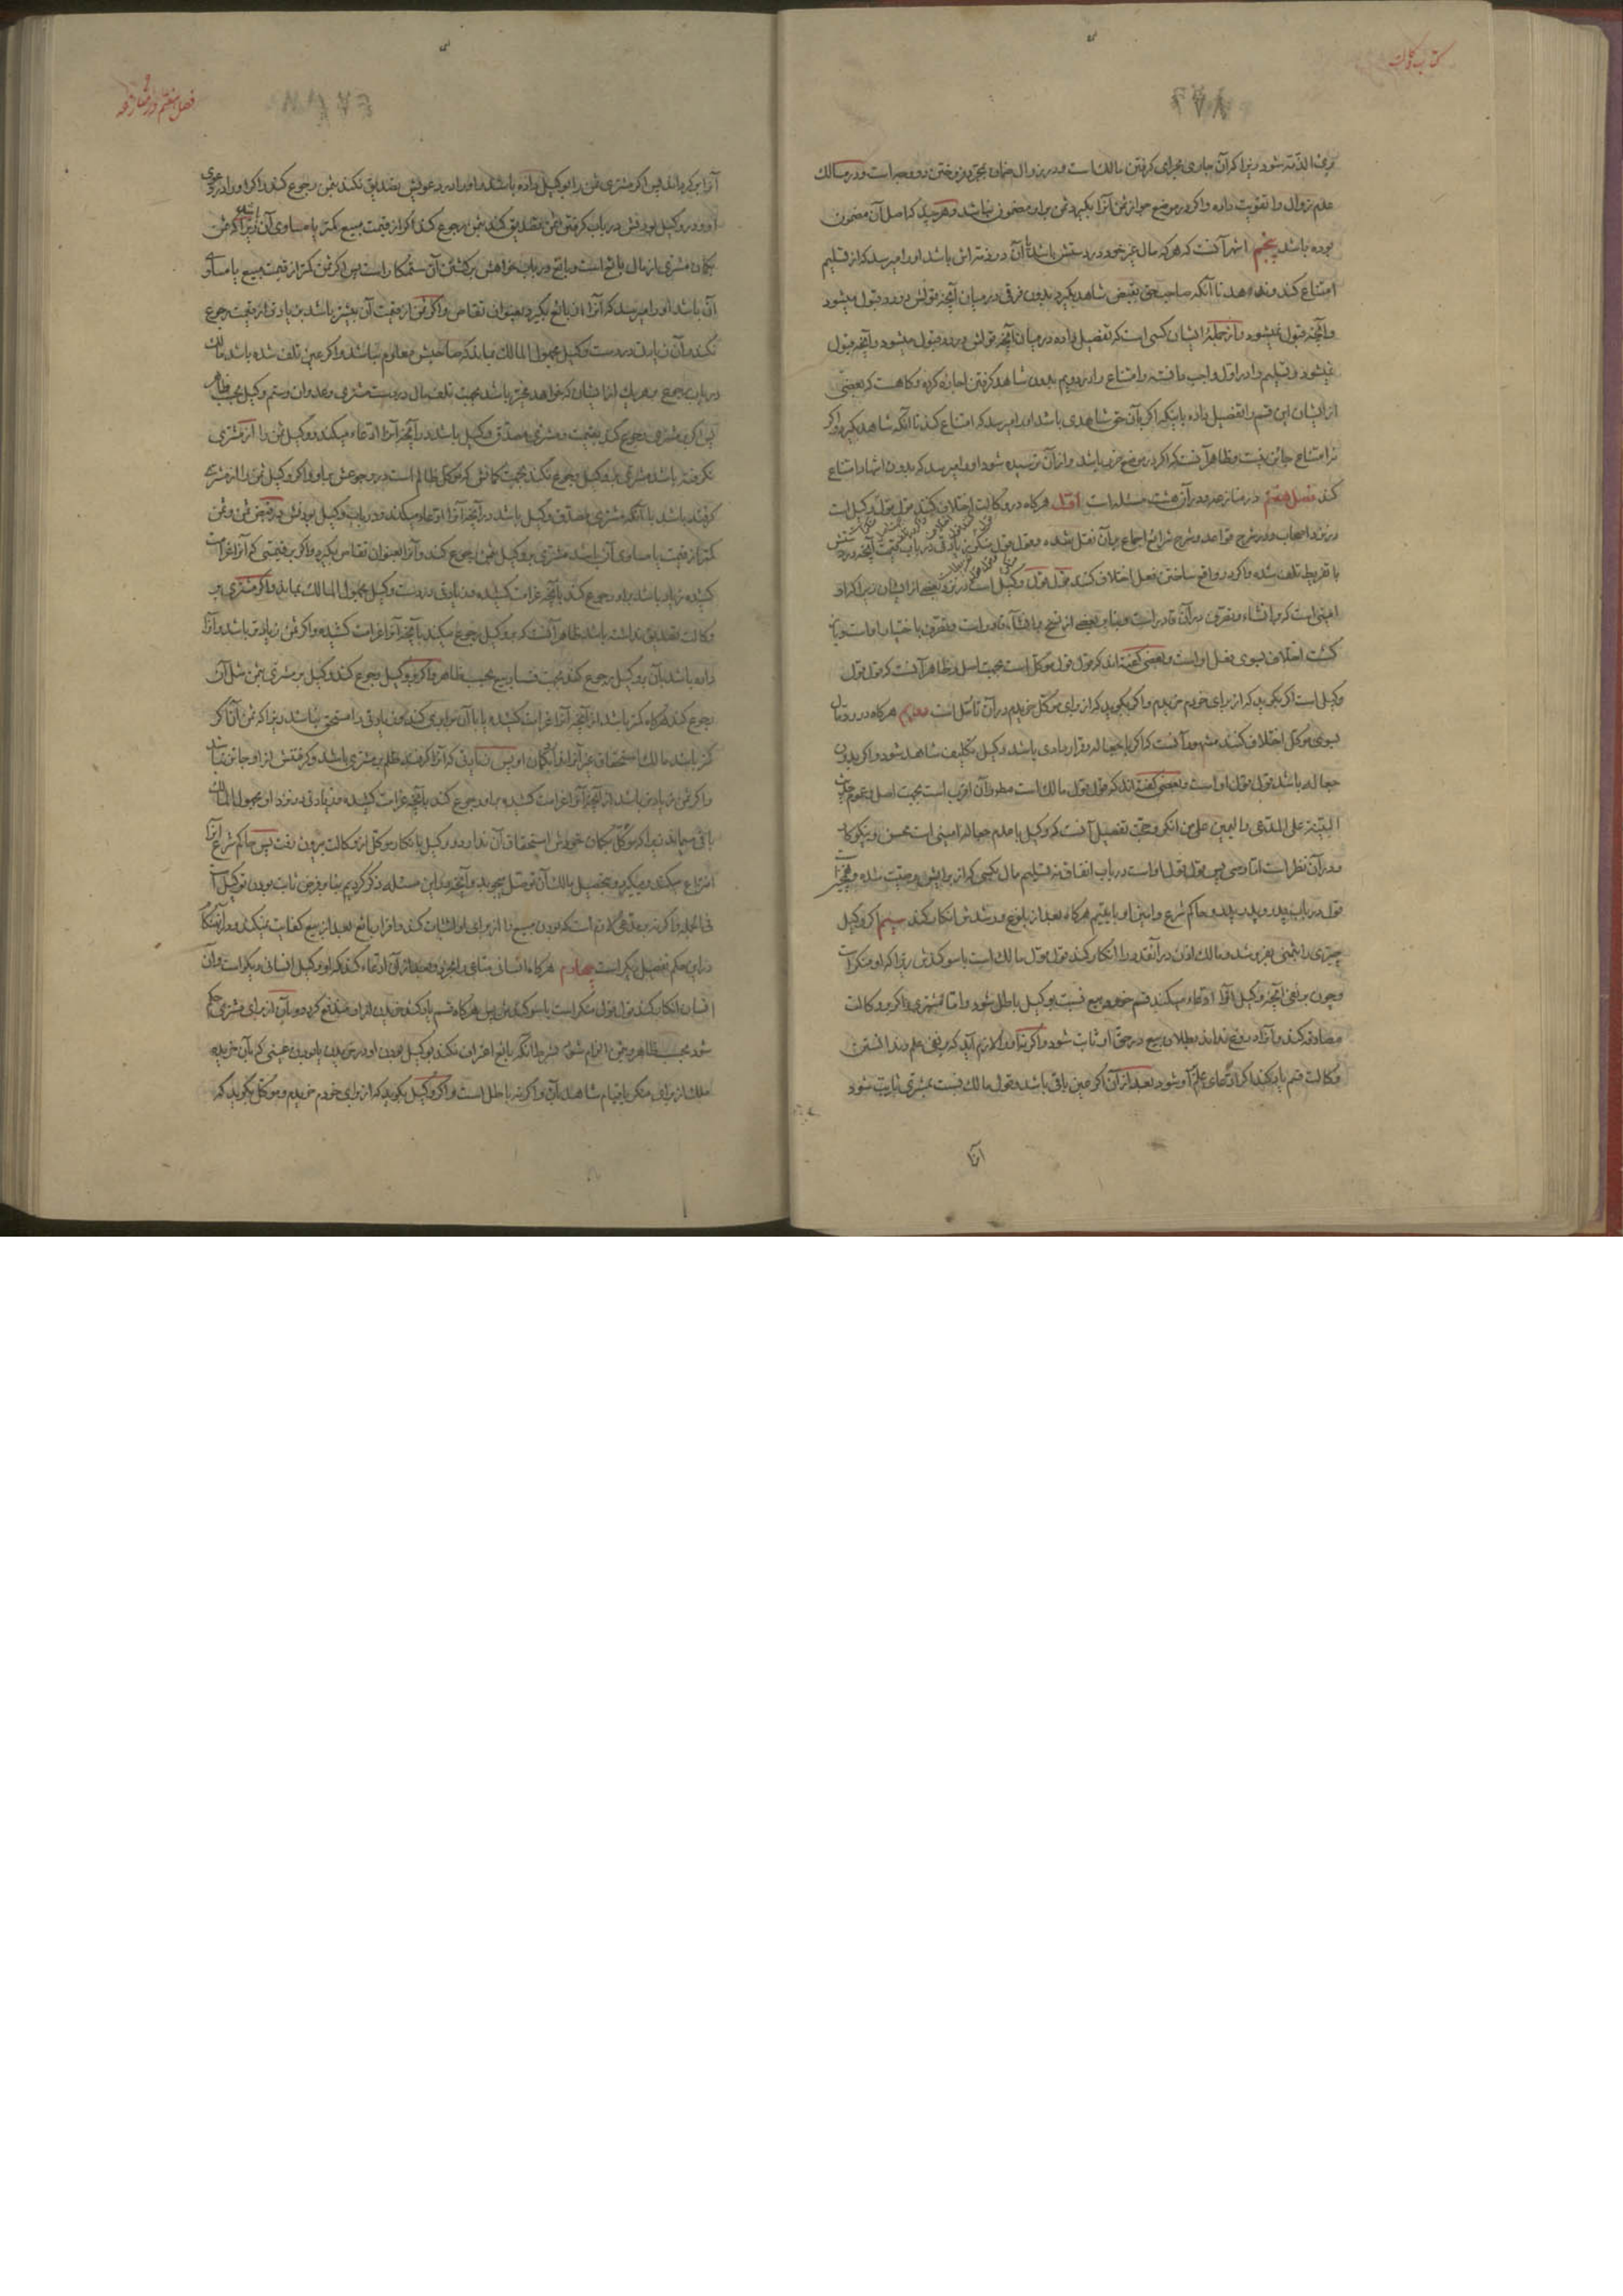 کتاب وکالت
بری الذمه شود زیرا که آن جاری مجرای گرفتن مالک است و در زوال ضمان بمجرد فروختن دو وجه است و در مسالک
عدم زوال را تقویت داده و اگر در موضع جواز ثمن آنرا بگیرد ثمن بر او مضمون نباشد و هر چند که اصل آن مضمون
بوده باشد پنجم اشهر آنست که هر که مال غیر خود در دستش باشد یا آن در ذمه اش باشد او را میرسد که از تسلیم
امتناع کند و ندهد تا آنکه صاحب حق بقبض شاهد بگیرد بدون فرقی در میان آنچه قولش در رد قبول میشود
و آنچه قبول نمیشود و از جمله ایشان کسی است که تفصیل داده در میان آنچه قولش در رد قبول میشود و آنچه قبول
نمیشود و تسلیم را در اول واجب دانسته و امتناع را در دویم بدون شاهد گرفتن اجازه کرده و گاهست که بعضی
از ایشان این قسم را تفصیل داده باینکه اگر بآن حق شاهدی باشد او را میرسد که امتناع کند تا آنکه شاهد بگیرد و اگر
نه امتناع جایز نیست و ظاهر آنست که اگر در موضع ضرر باشد و از آن ترسیده شود او را میرسد که بدون اشهاد امتناع
کند فصل هفتم در منازعه و در آن هشت مسئله است اول هرگاه در وکالت اختلاف کنند قول قول
با تفریط تلف شده و اگر در واقع ساختن فعل اختلاف کنند قول قول وکیل است در نزد بعضی از ایشان زیرا که او
امینی است که بر انشاء و تصرف قادر است
گشت اختلاف بسوی فعل او است و بعضی گفته اند که قول قول موکل است بجهت اصل و ظاهر آنست که قول قول
وکیل است اگر بگوید که از برای خودم خریدم و اگر بگوید که از برای موکل خریدم در آن تأمل است دویم هرگاه در رد مال
بسوی موکل اختلاف کنند مشهور آنست که اگر با جعاله و قراردادی باشد وکیل تکلیف شاهد شود و اگر بدون
جعاله باشد قول قول او است و بعضی گفته اند که قول قول مالک است مطلقا و آن اقرب است بجهت اصل و عموم حدیث
البینة علی المدعی و الیمین علی من انکر و حجت تفصیل آنست که وکیل با عدم جعاله امینی است محسن و نیکوکار
و در آن نظر است اما وصی پس قول قول او است در باب انفاق نه تسلیم مال بکسی که از برایش وصیت شده
قول در باب پدر و پدر پدر و حاکم شرع و امین او با یتیم هرگاه بعد از بلوغ و رشدش انکار کند سیم اگر وکیل
چیزی را بثمنی بفروشد و مالک اذن در آنقدر را انکار کند قول قول مالک است با سوگندش زیرا که او منکر است
و چون بر نفی آنچه وکیل آنرا ادعاء میکند قسم خورد بیع نسبت بوکیل باطل شود و اما مشتری اگر بر وکالت
مصادقه کند و آنرا دروغ نداند بطلان بیع در حق او ثابت شود و اگر نه او را لازم آید که بر نفی علم و ندانستن
وکالت قسم یاد کند اگر ادعای علم بر او شود بعد از آن اگر عین باقی باشد و قول مالک نسبت بمشتری ثابت شود
آنرا
فصل هفتم در منازعه
آنرا برگرداند پس اگر مشتری ثمن را بوکیل داده باشد و او را در دعویش تصدیق نکند بثمن رجوع کند و اگر او را در دعوی
او و در وکیل بودنش در باب گرفتن ثمن تصدیق کند بثمن رجوع کند اگر از قیمت مبیع کمتر یا مساوی آن باشد زیرا که ثمن
بگمان مشتری از مال بائع است و بائع در باب خواهش برگشتن آن ستمکار است پس اگر ثمن کمتر از قیمت مبیع یا مساوی
آن باشد او را میرسد که آنرا از بائع بگیرد بعنوان تقاص و اگر ثمن از قیمت آن بیشتر باشد بزیادتی از قیمت رجوع
نکند و آن زیادتی در دست وکیل مجهول المالک بماند که صاحبش معلوم نباشد و اگر عین تلف شده باشد مالک
در باب رجوع بهر یک از ایشان که خواهد مخیر باشد بجهت تلف مال در دست مشتری و عدوان و ستم وکیل بحسب ظاهر
پس اگر بمشتری رجوع کند بقیمت و مشتری مصدق وکیل باشد در آنچه آنرا ادعاء میکند و وکیل ثمن را از مشتری
نگرفته باشد مشتری بوکیل رجوع نکند بجهت گمانش که موکل ظالم است در رجوعش باو و اگر وکیل ثمن را از مشتری
گرفته باشد با آنکه مشتری مصدق وکیل باشد در آنچه آنرا ادعاء میکند و در باب وکیل بودنش در قبض ثمن و ثمن
کمتر از قیمت یا مساوی آن باشد مشتری بر وکیل بثمن رجوع کند و آنرا بعنوان تقاص بگیرد و اگر بر قیمتی که آنرا غرامت
کشیده زیاد باشد باو رجوع کند بآنچه غرامت کشیده و زیادتی در دست وکیل مجهول المالک بماند و اگر مشتری بر
وکالت تصدیق نداشته باشد ظاهر آنست که بر وکیل رجوع میکند بآنچه آنرا غرامت کشیده و اگر ثمن زیادتر باشد و آنرا
داده باشد بآن بر وکیل رجوع کند بجهت فساد بیع بحسب ظاهر و اگر بر وکیل رجوع کند وکیل بر مشتری بثمن مثل آن
رجوع کند هرگاه کمتر باشد از آنچه آنرا غرامت کشیده یا با آن برابری کند و زیادتی را مستحق نباشد زیرا که ثمن آن اگر
کمتر باشد مالک استحقاق غیر آنرا ندارد بگمان او پس زیادتی که آنرا گرفته ظلم بر مشتری باشد و گرفتنش از او جایز نباشد
و اگر ثمن زیادتر باشد از آنچه آنرا غرامت کشیده باو رجوع کند بآنچه غرامت کشیده و زیادتی در نزد او مجهول المالک
باقی میماند زیرا که موکل بگمان خودش استحقاق آن ندارد و وکیل بانکار موکل از وکالت بیرون رفت پس حاکم شرع آنرا
انتزاع میکند و میگیرد و بتحصیل مالک آن توسل میجوید و آنچه در این مسئله ذکر کردیم بنا بر فرض ثابت بودن توکیل است
فی الجمله و اگر نه بر مدعی لازم است که بودن مبیع را از برای او اثبات کند و اقرار بائع بعد از بیع کفایت نمیکند و در آنهنگام
در این حکم تفصیل دیگر است چهارم هرگاه انسانی متاعی را بخرد و بعد از آن ادعاء کند که او وکیل انسانی دیگر است و آن
انسان انکار کند قول قول منکر است با سوگندش پس هرگاه قسم یاد کند خریدن از او مندفع گردد و آن از برای مشتری حکم
شود بحسب ظاهر و ثمن او را لازم شود بشرط آنکه بائع اعتراف نکند بوکیل بودن او در خریدن یا بودن عینی که بآن خریده
ملک از برای منکر یا قیام شاهد بآن و اگر نه باطل است و اگر وکیل بگوید که از برای خودم خریدم و موکل بگوید که